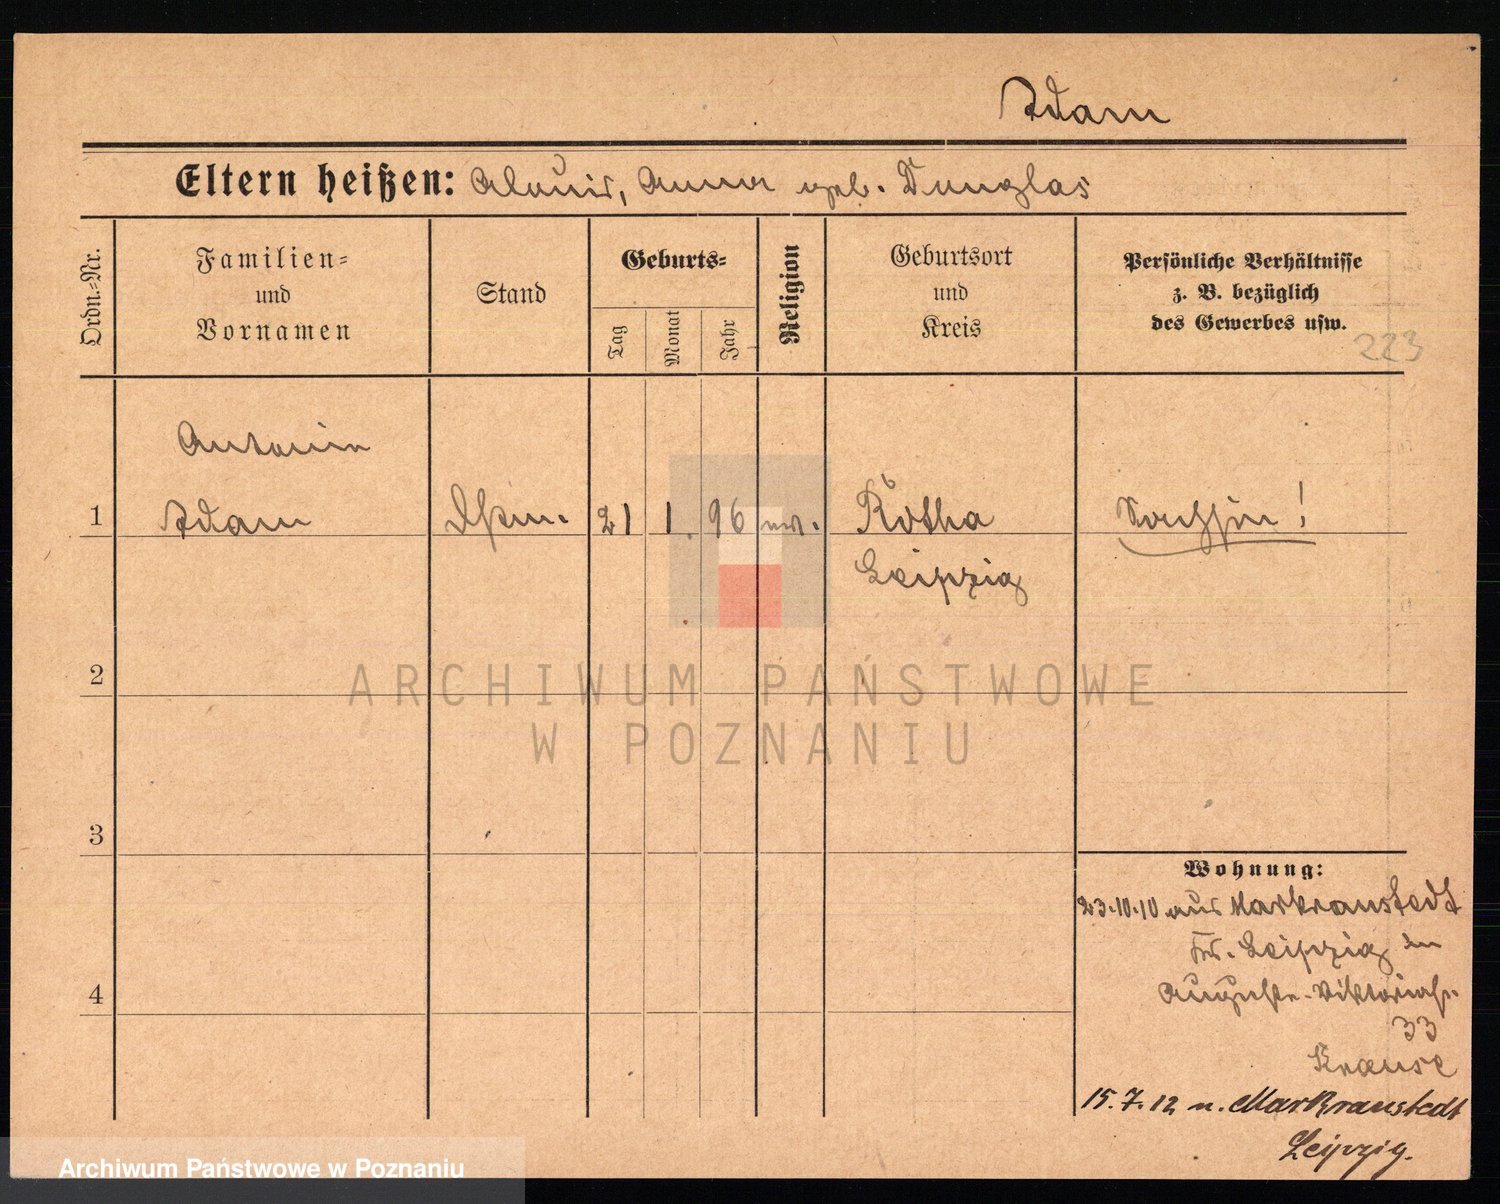 Adam
Eltern heißen: Alouis, Anna geb. Dunglas
Ordn.=Nr.
Familien=
und
Vornamen
Stand
Geburts=
Tag
Monat
Jahr
Religion
Geburtsort
und
Kreis
Persönliche Verhältnisse
z. B. bezüglich
des Gewerbes usw.
223
Antonin
1 Adam 21 1. 96 Rötha Sachsen!
Leipzig
2
ARCHIWUM PAŃSTWOWE
W POZNANIU
3
Wohnung:
23.10.10 aus Markranstedt
Kr. Leipzig in
4
Auguste-Viktoriastr.
33
Krause
15.7.12 n. Markranstedt
Leipzig.
Archiwum Państwowe w Poznaniu